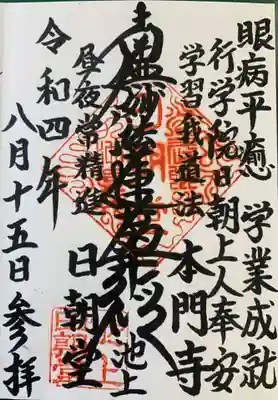 眼病平癒 学業成就
行学院日朝上人奉安
学習我道法
本門寺
南無妙法蓮華経
池上
昼夜常精進
日朝堂
令和四年
八月十五日参拝